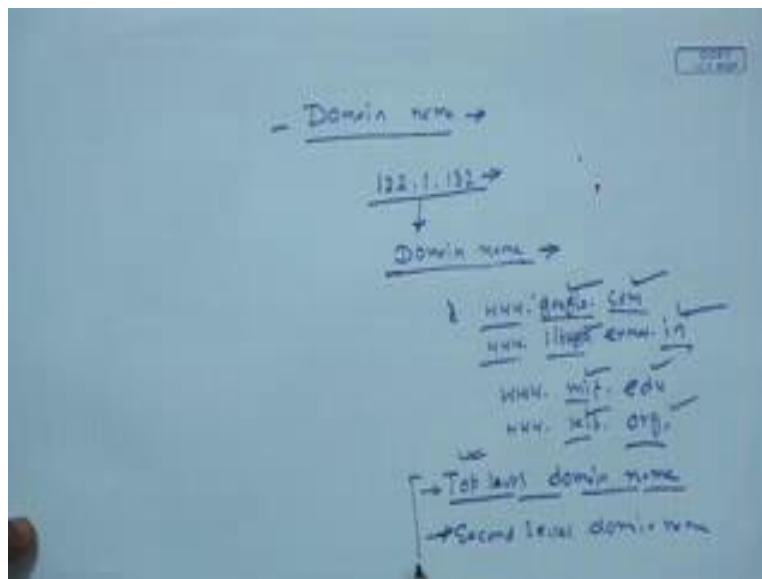 - Domain name →
122.1.132 →
Domain name →
www. .com
www. .in
www. mit. edu
www. . org.
→ Top level domain name
→ Second level domain name